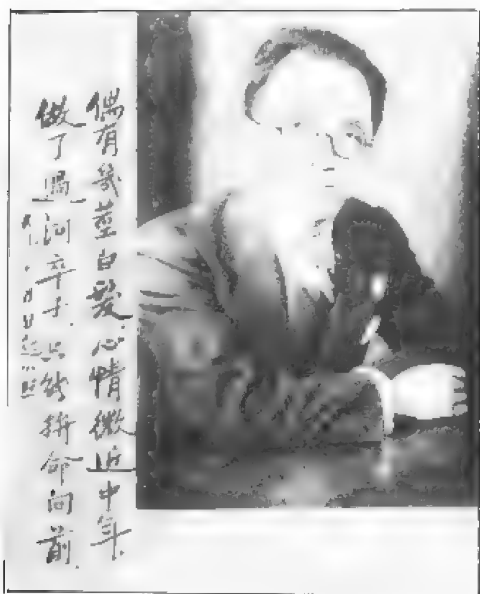 偶有幾莖白髮，心情微近中年.
做了過河卒子，只能拚命向前.